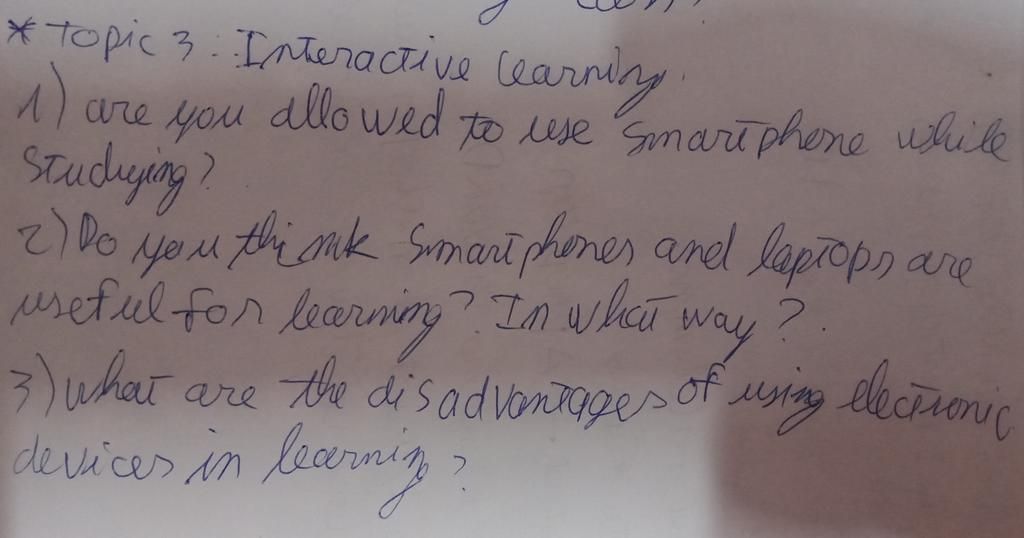 * Topic 3: Interactive learning.
1) are you allowed to use smartphone while
studying?
2) Do you think smartphones and laptops are
useful for learning? In what way?
3) what are the disadvantages of using electronic
devices in learning?